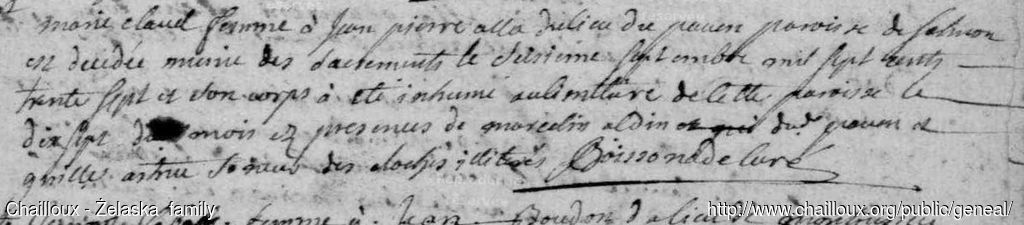 marie claud femme à Jean pierre alla du lieu du pauen paroisse de salmon
est decedée munie des sacrements le seisieme septembre mil sept cents
trente sept et son corps à eté inhumé au simettiere de cette paroisse le
dix sept du mois ez presences de marcelin aldin et dud pauen et
guilles astrue soneur des cloches illiterés Boissonade curé
femme à Jean Boudon du lieu de
Chailloux - Żelaska family
http://www.chailloux.org/public/geneal/